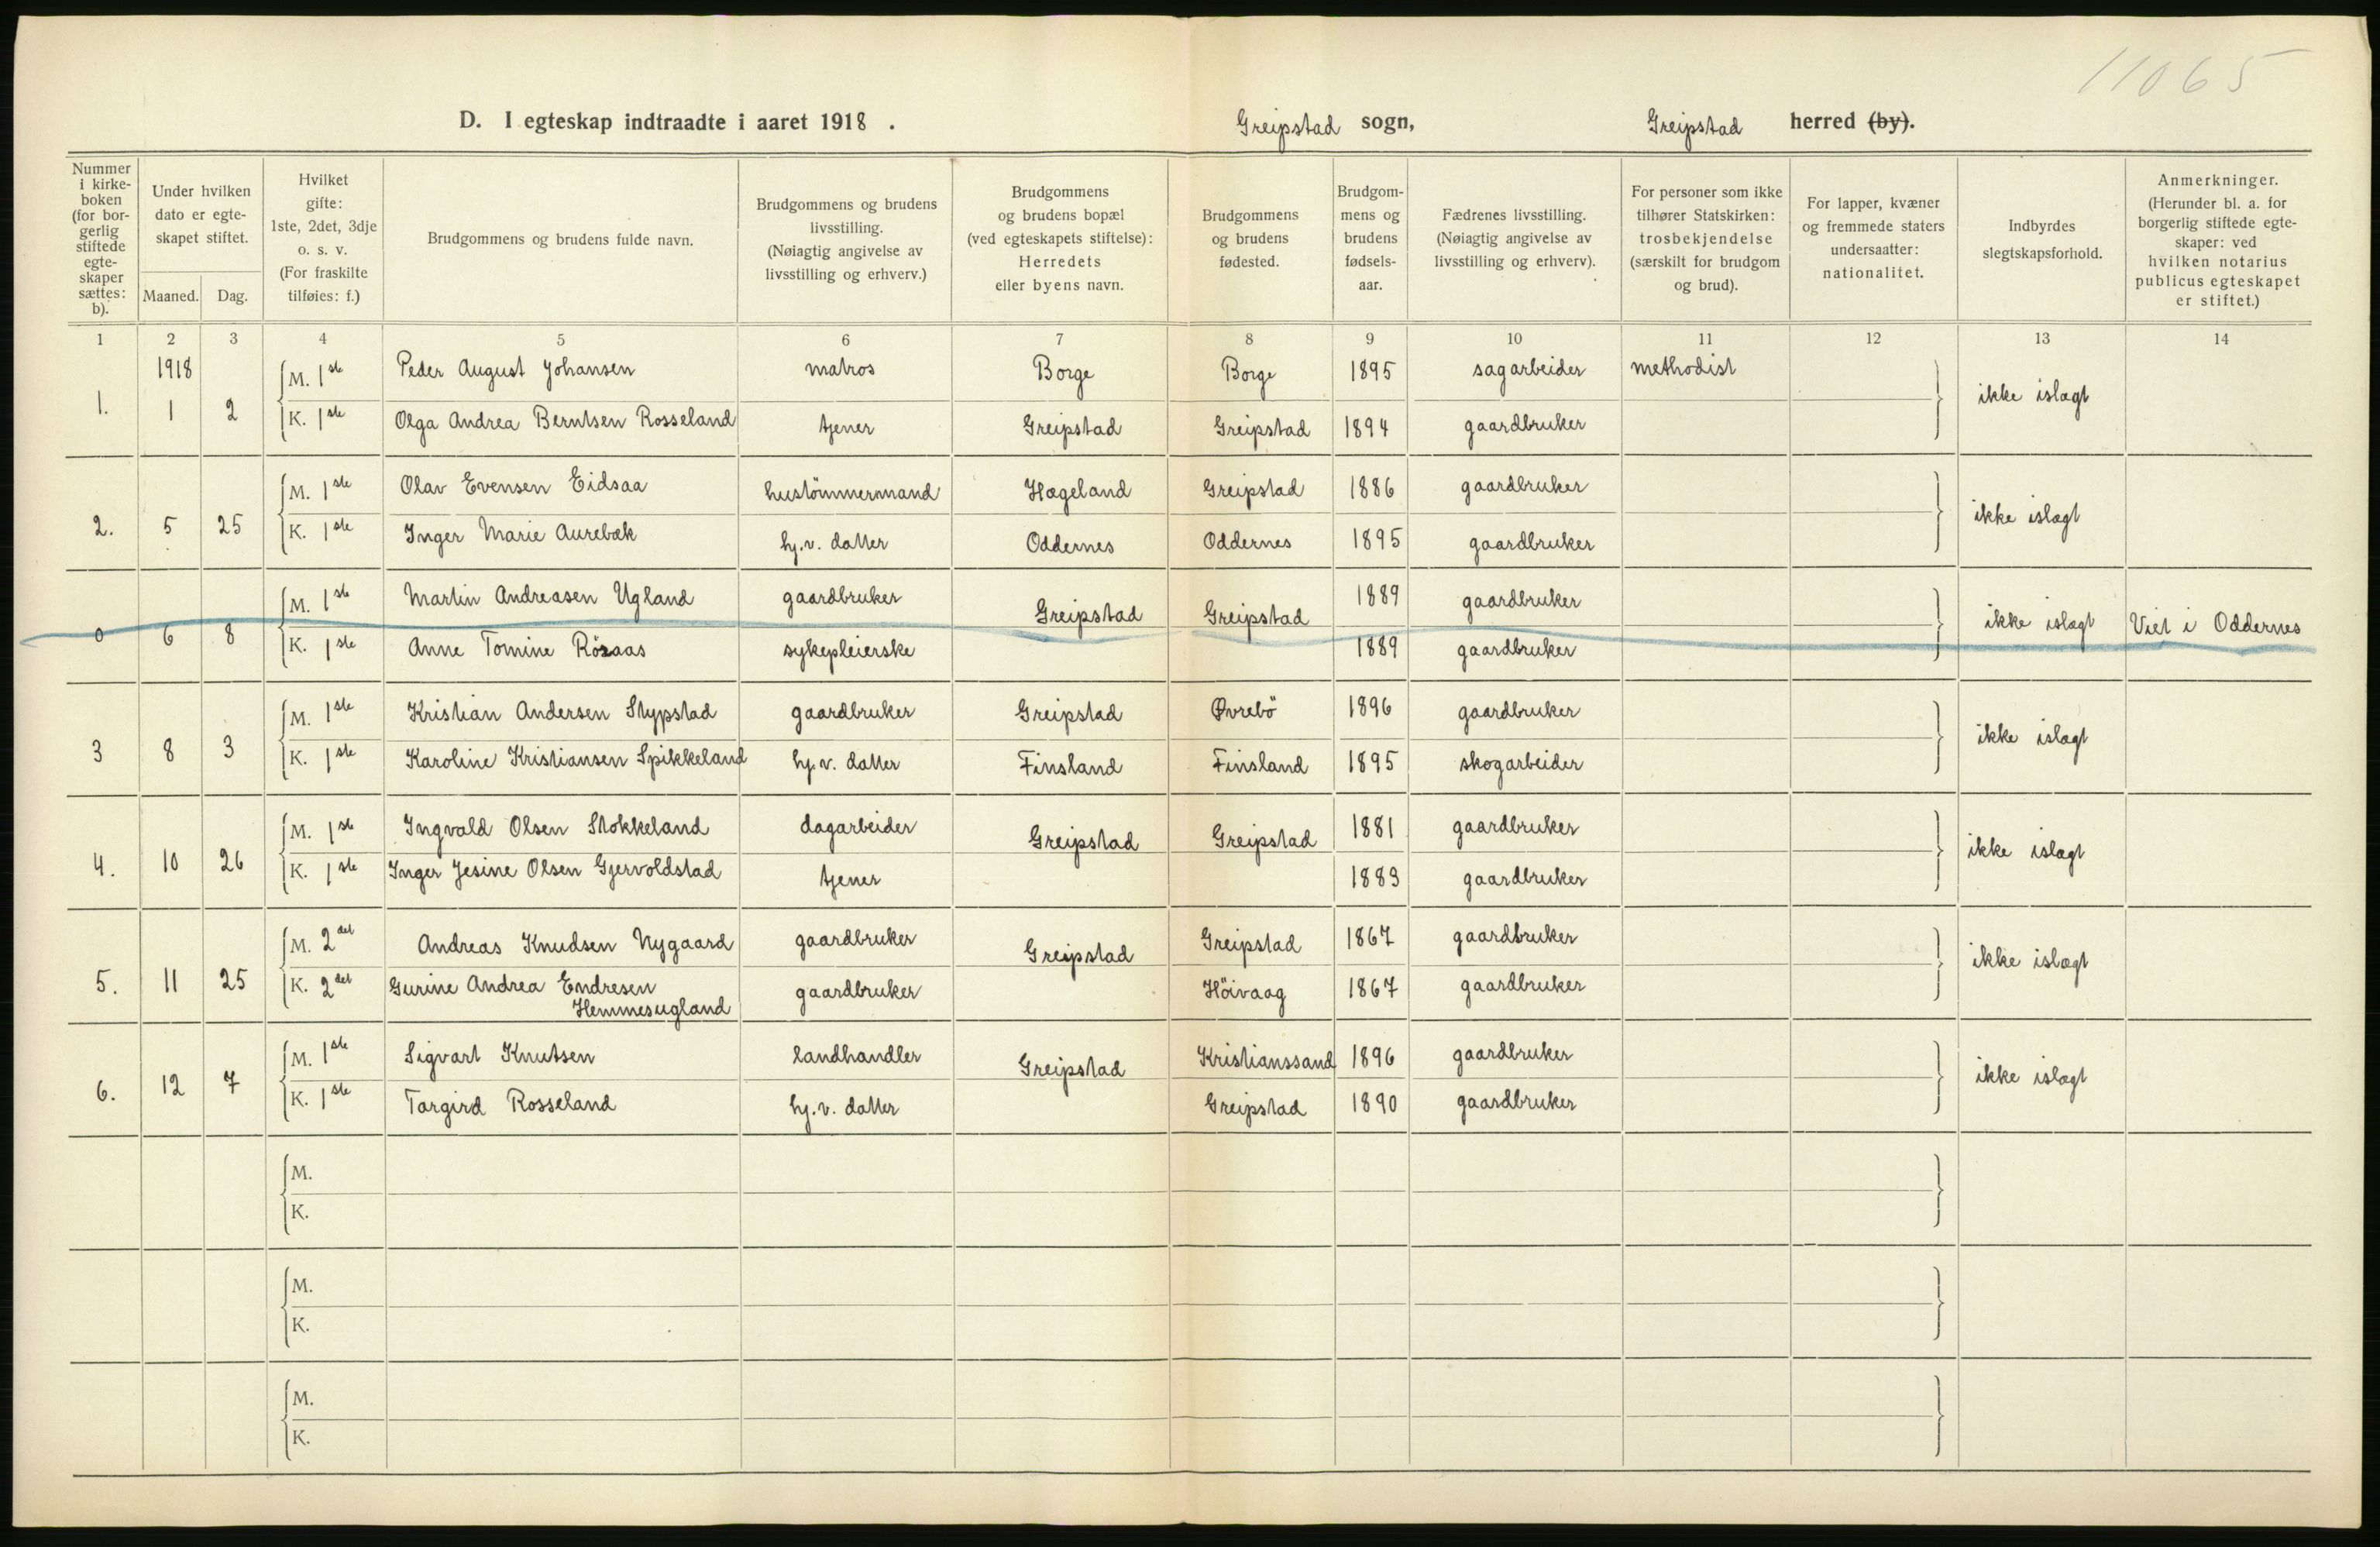 11065
D. I egteskap indtraadte i aaret 1918 . Greipstad sogn, Greipstad herred (by).
Nummer i kirkeboken (for borgerlig stiftede egteskaper sættes: b).
Under hvilken dato er egteskapet stiftet.
Maaned. Dag.
Hvilket gifte: 1ste, 2det, 3dje o. s. v. (For fraskilte tilføies: f.)
Brudgommens og brudens fulde navn.
Brudgommens og brudens livsstilling. (Nøiagtig angivelse av livsstilling og erhverv.)
Brudgommens og brudens bopæl (ved egteskapets stiftelse): Herredets eller byens navn.
Brudgommens og brudens fødested.
Brudgommens og brudens fødselsaar.
Fædrenes livsstilling. (Nøiagtig angivelse av livsstilling og erhverv).
For personer som ikke tilhører Statskirken: trosbekjendelse (særskilt for brudgom og brud).
For lapper, kvæner og fremmede staters undersaatter: nationalitet.
Indbyrdes slegtskapsforhold.
Anmerkninger. (Herunder bl. a. for borgerlig stiftede egteskaper: ved hvilken notarius publicus egteskapet er stiftet.)
1 2 3 4 5 6 7 8 9 10 11 12 13 14
1918 M. 1ste Peder August Johansen matros Borge Borge 1895 sagarbeider methodist
1. 1 2 K. 1ste Olga Andrea Berntsen Rosseland tjener Greipstad Greipstad 1894 gaardbruker ikke islægt
M. 1ste Olav Evensen Eidsaa hustömmermand Hægeland Greipstad 1886 gaardbruker
2. 5 25 K. 1ste Inger Marie Aurebæk hj.v. datter Oddernes Oddernes 1895 gaardbruker ikke islægt
M. 1ste Martin Andreasen Ugland gaardbruker Greipstad Greipstad 1889 gaardbruker
0 6 8 K. 1ste Anne Tomine Rösaas sykepleierske 1889 gaardbruker ikke islægt Viet i Oddernes
M. 1ste Kristian Andersen Stypstad gaardbruker Greipstad Øvrebö 1896 gaardbruker
3 8 3 K. 1ste Karoline Kristiansen Spikkeland hj.v. datter Finsland Finsland 1895 skogarbeider ikke islægt
M. 1ste Ingvald Olsen Stokkeland dagarbeider Greipstad Greipstad 1881 gaardbruker
4. 10 26 K. 1ste Inger Jesine Olsen Gjervoldstad tjener 1883 gaardbruker ikke islægt
M. 2det Andreas Knudsen Nygaard gaardbruker Greipstad Greipstad 1867 gaardbruker
5. 11 25 K. 2det Gurine Andrea Endresen gaardbruker Höivaag 1867 gaardbruker ikke islægt
Hemmesugland
M. 1ste Sigvart Knutsen landhandler Greipstad Kristianssand 1896 gaardbruker
6. 12 7 K. 1ste Targird Rosseland hj.v. datter Greipstad 1890 gaardbruker ikke islægt
M.
K.
M.
K.
M.
K.